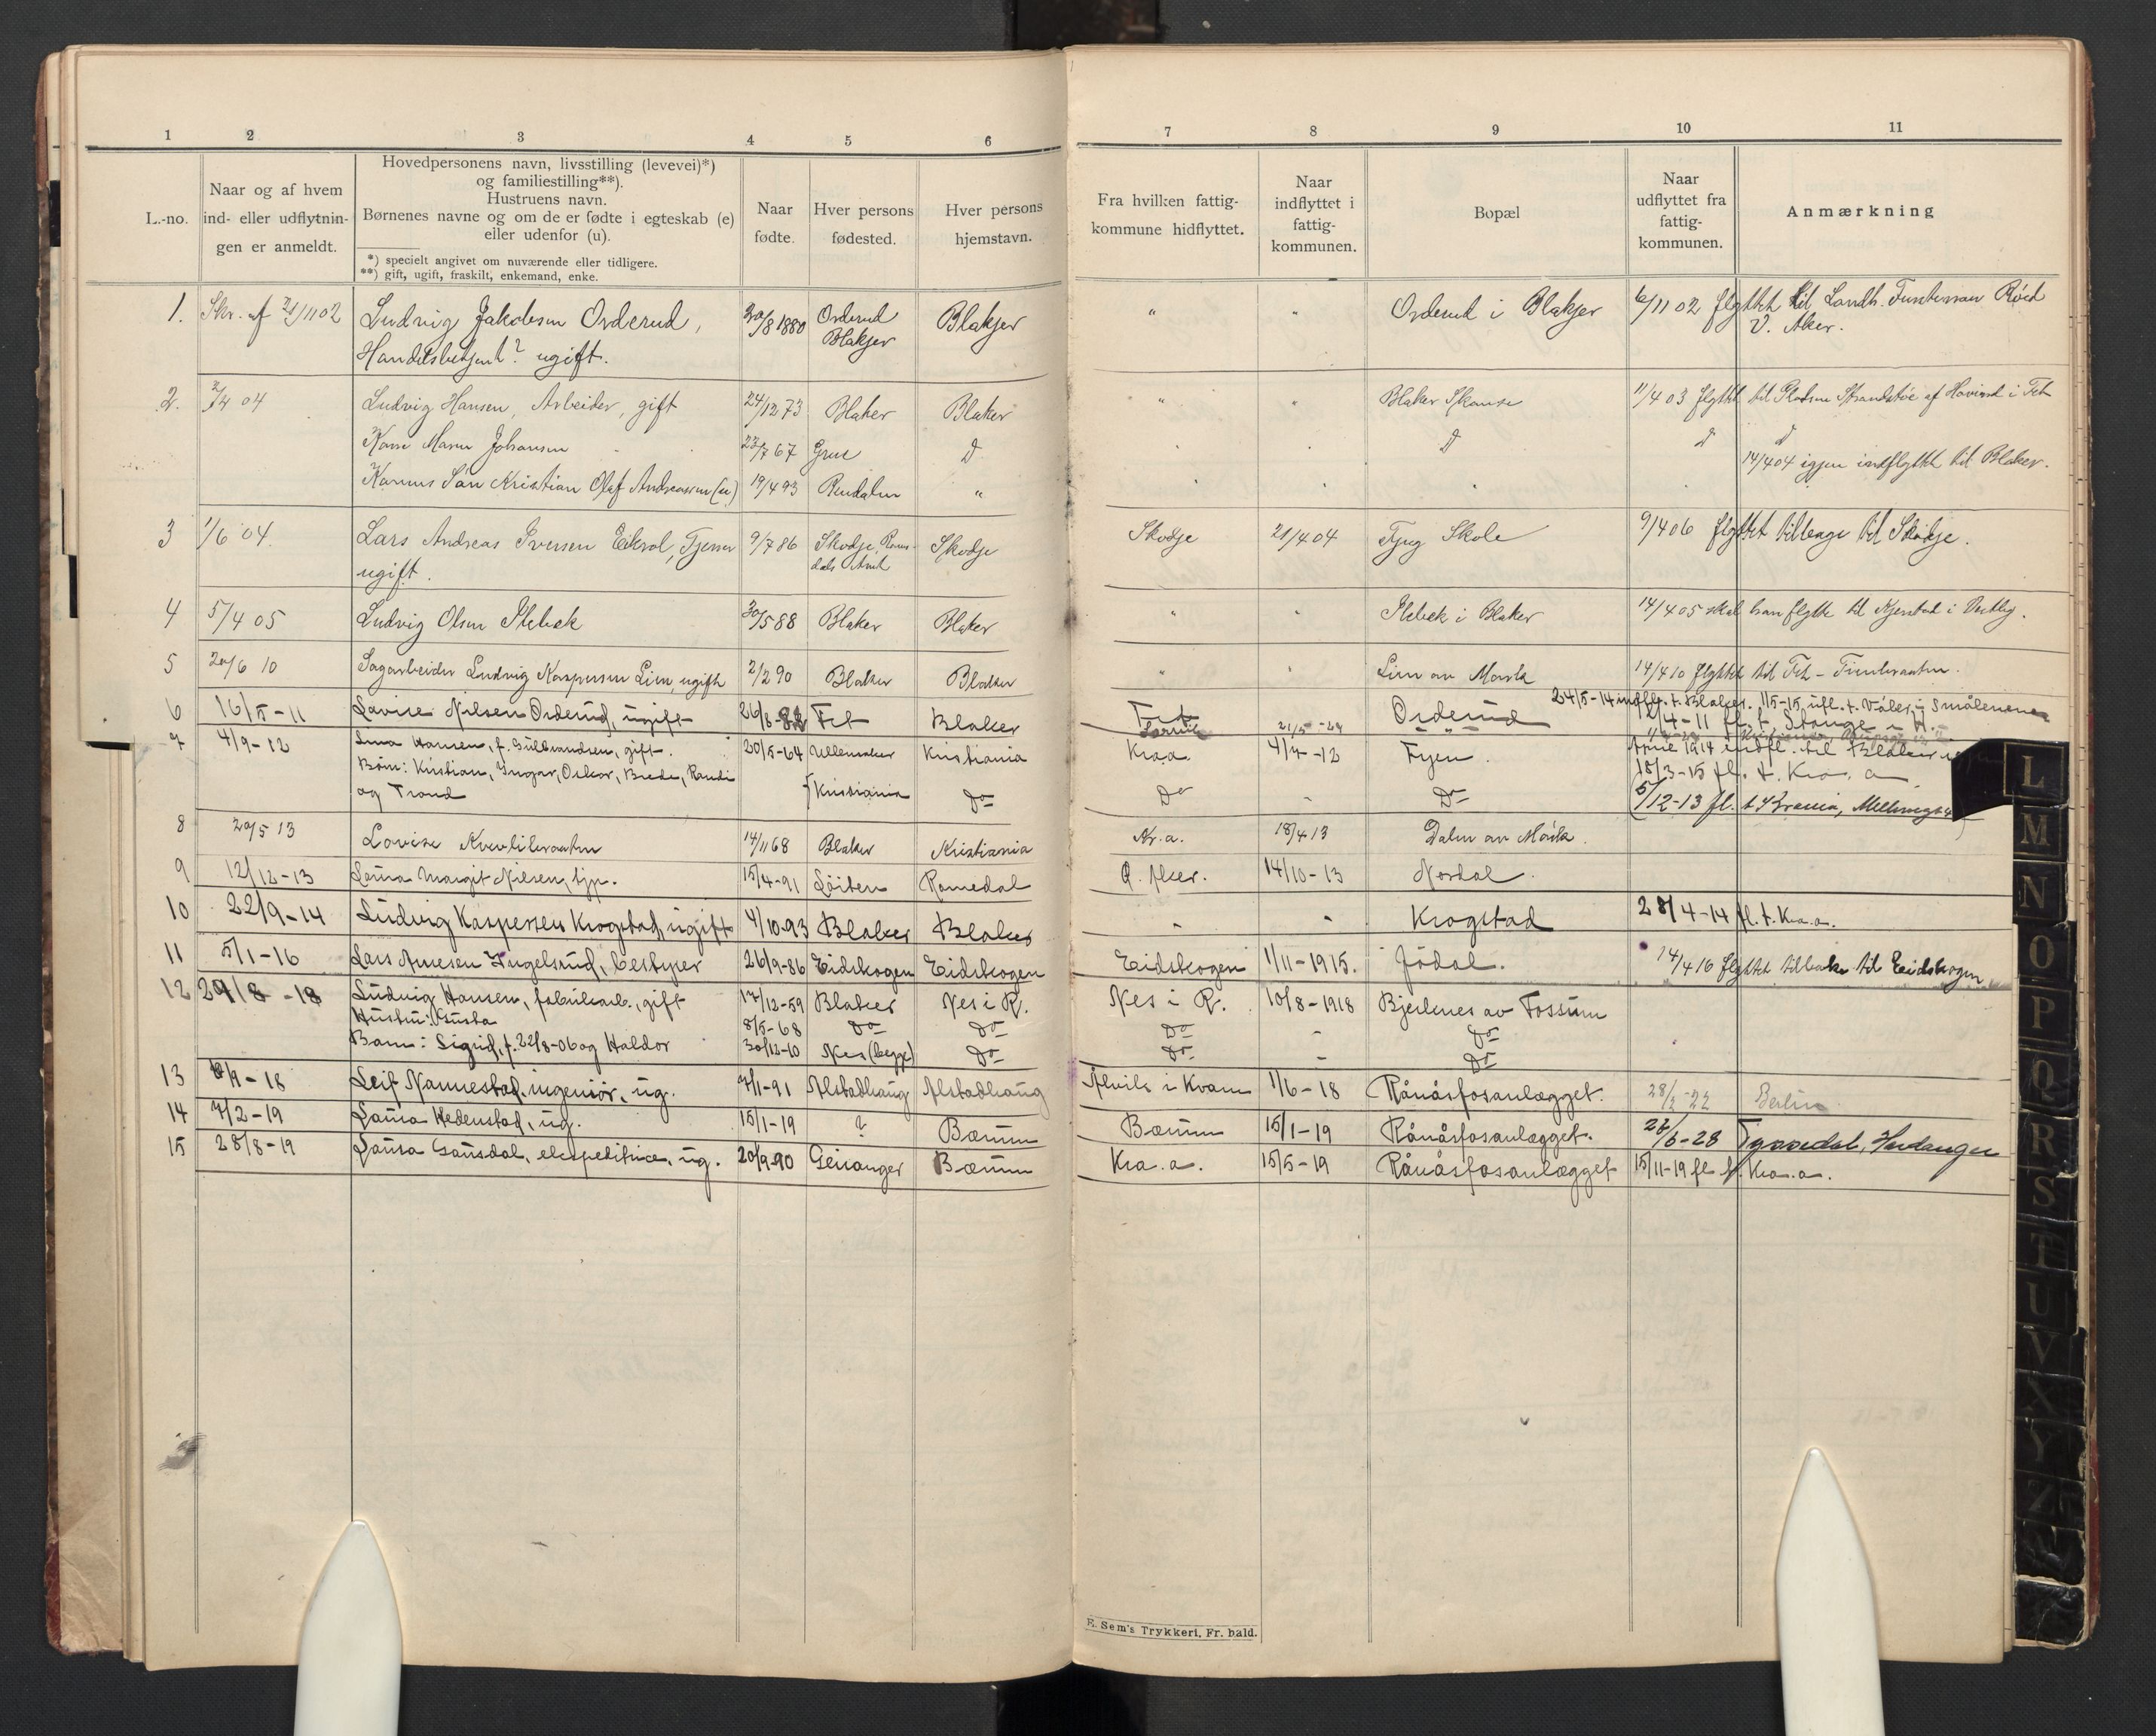 1 2 3 4 5 6
L.-no.
Naar og af hvem
ind- eller udflytnin-
gen er anmeldt.
Hovedpersonens navn, livsstilling (levevei)*)
og familiestilling**).
Hustruens navn.
Børnenes navne og om de er fødte i egteskab (e)
eller udenfor (u).
*) specielt angivet om nuværende eller tidligere.
**) gift, ugift, fraskilt, enkemand, enke.
Naar
fødte.
Hver persons
fødested.
Hver persons
hjemstavn.
1. Skr. af 21/11 02 Ludvig Jakobsen Orderud, 30/8 1880 Orderud Blakjer
Handelsbetjent? ugift. Blakjer
2. 2/4 04 Ludvig Hansen, Arbeider, gift 24/12 73 Blaker Blaker
Maren Johansen 23/7 67 Grue D
Søn Kristian Olaf Andreassen (u) 19/4 93 Rendalen "
3 1/6 04. Lars Andreas Iversen Eikrol, Tjener 9/7 86 Skodje, Roms- Skodje
ugift. dals Amt
4 5/4 05 Ludvig Olsen Ilebek 30/5 88 Blaker Blaker
5 20/6 10 Sagarbeider Ludvig Kaspersen Lien, ugift 2/2 90 Blaker Blaker
6 16/5-11 Lovise Nilsen Orderud, ugift 26/8-82 Fet Blaker
7 4/9-12 Hansen, f. Gulbrandsen, gift. 20/5-64 Ullensaker Kristiania
Børn: Kristian, Ingar, Oskar, Brede, Randi
og Trond Kristiania Do
8 20/5 13 Lovise 14/11 68 Blaker Kristiania
9 12/12-13 Laura Margit Nilsen, tjp. 15/4-91 Löiten Romedal
10 22/9-14 Ludvig Kaspersen Krogstad, ugift 4/10-93 Blaker Blaker
11 5/1-16 Lars Ingelsrud, bestyrer 26/9-86 Eidskogen Eidskogen
12 29/8-18 Ludvig Hansen, fabrikarb., gift 17/12-59 Blaker Nes i R.
Hustru: Gusta 8/5-68 Do Do
Barn: Sigrid, f. 22/8-06 og Haldor 30/12-10 Nes (begge) Do
13 /9-18 Leif Nannestad, ingeniør, ug. 7/1-91 Alstadhaug Alstadhaug
14 7/2-19 Laura Hedenstad, ug. 15/1-19 ? Bærum
15 28/8-19 Laura Gausdal, ekspeditrice, ug. 20/9-90 Geiranger Bærum
7 8 9 10 11
Fra hvilken fattig-
kommune hidflyttet.
Naar
indflyttet i
fattig-
kommunen.
Bopæl
Naar
udflyttet fra
fattig-
kommunen.
Anmærkning
" " Orderud i Blakjer 6/11 02 flyttet til Landh. Røed
V. Aker.
" " Blaker Skanse 11/4 03 flyttet til af i Fet
D D D
14/4 04 igjen indflyttet til Blaker.
Skodje 21/4 04 Fjug Skole 9/4 06 flyttet tilbage til Skodje.
" " Ilebek i Blaker 14/4 05 skal han flytte til i Vestby.
" " Lien av Mork 14/4 10 flyttet til Fet -
24/5-14 indfl. t. Blaker. 1/5-15 utfl. t. Våler i Smålenene
Fet Orderud 12/4-11 fl. t. Stange i H.
21/5-24
Kra.a. 4/4-12 Fyen. 1914 indfl. til Blaker
18/3-15 fl. t. Kra. a
Do " Do 5/12-13 fl. t. Krania,
Kr.a. 18/4 13 Dalen av Mork.
Ö. Aker. 14/10-13 Nordal.
" " Krogstad 28/4-14 fl. t. Kra.a.
Eidskogen 1/11-1915. Jödal. 14/4 16 flyttet tilbake til Eidskogen
Nes i R. 10/8-1918 Bjerknes av Fossum
Do " Do
Do " Do
Ålvik i Kvam 1/6-18 Rånåsfosanlægget. 28/2-22 Berlin
Bærum 15/1-19 Rånåsfosanlægget. 26/6-28 Tyssedal, Hardanger
Kra.a. 15/5-19 Rånåsfosanlægget 15/11-19 fl. t. Kra.a.
E. Sem's Trykkeri, Fr.hald.
L
M
N
O
P
Q
R
S
T
U
V
X
Y
Z